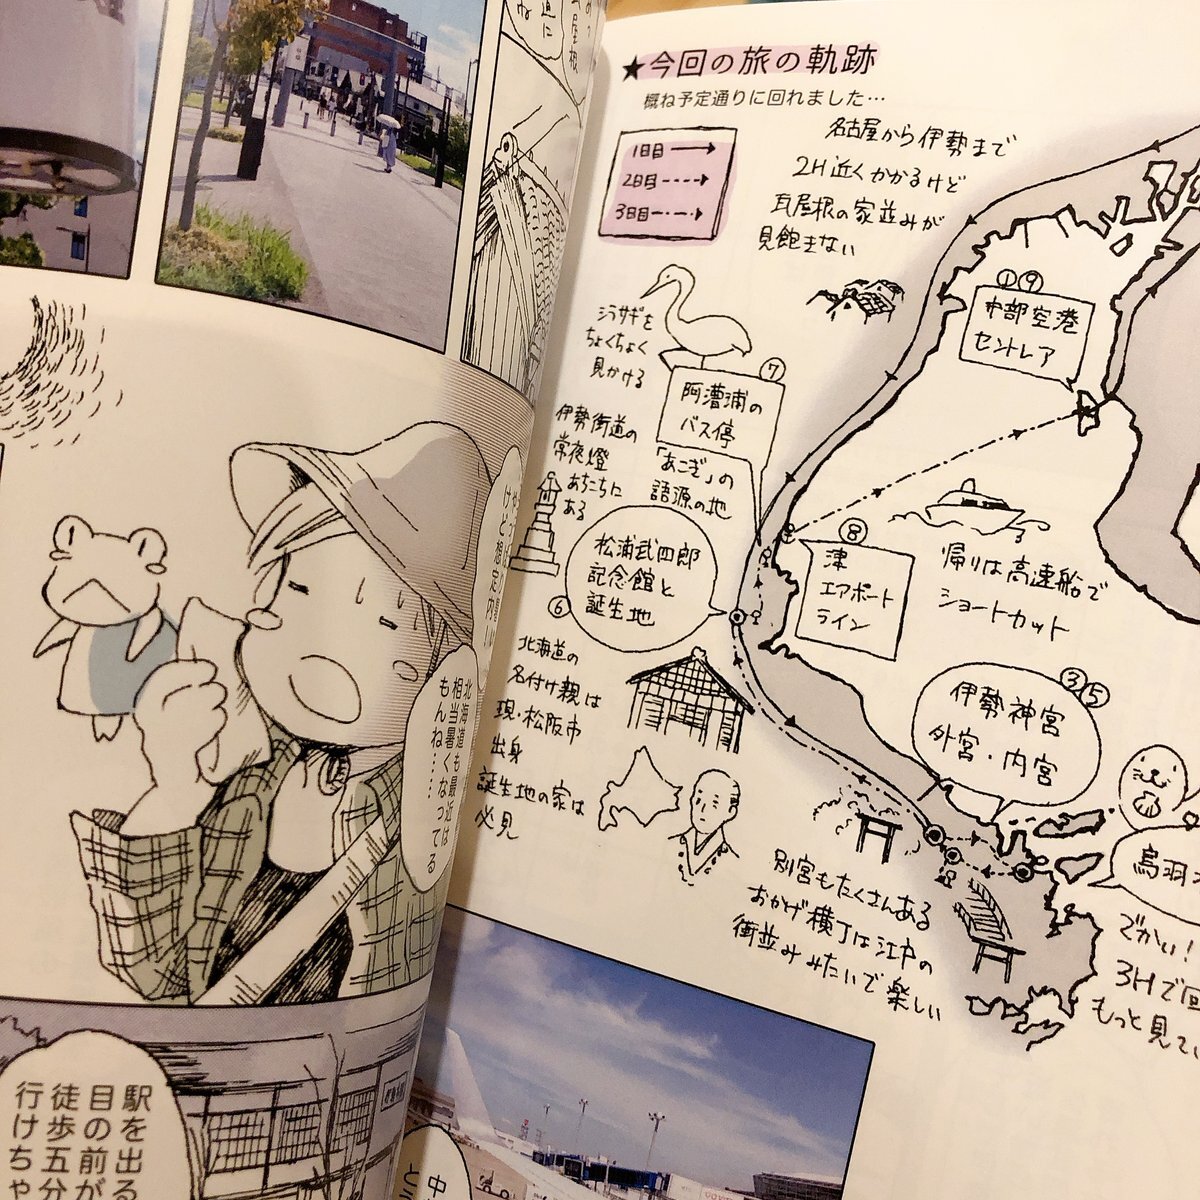 ★今回の旅の軌跡
概ね予定通りに回れました…
1日目
2日目
3日目
名古屋から伊勢まで
2H近くかかるけど
瓦屋根の家並みが
見飽きない
①⑨
中部空港
セントレア
シラサギを
ちょくちょく
見かける
⑦
阿漕浦の
バス停
「あこぎ」の
語源の地
伊勢街道の
常夜燈
あちこちに
ある
⑥
松浦武四郎
記念館と
誕生地
⑧
津
エアポート
ライン
帰りは高速船で
ショートカット
北海道の
名付け親は
現・松阪市
出身
誕生地の家は
必見
③⑤
伊勢神宮
外宮・内宮
別宮もたくさんある
おかげ横丁は江戸の
街並みみたいで楽しい
鳥羽
でかい!
3Hで
もっと見てい
けど想定内暑い
北海道も最近は
相当暑くなってる
もんね……
駅を出る
目の前が
徒歩五分
行けちゃ